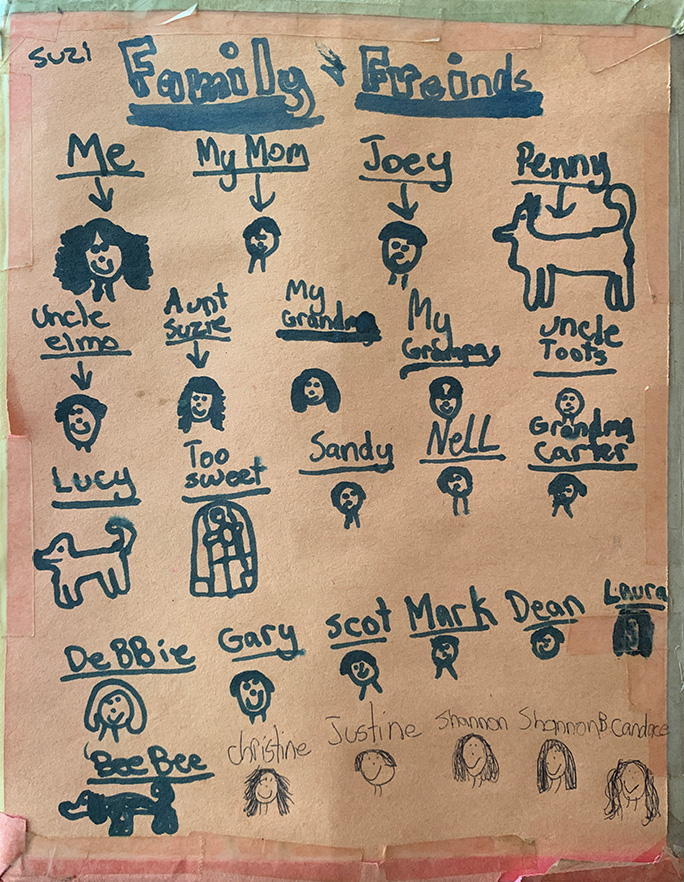 Suzi
Family & Freinds
Me
My Mom
Joey
Penny
Uncle
elmo
Aunt
Suzie
My
Grandma
My
Grampa
Uncle
Toots
Lucy
Too
sweet
Sandy
Nell
Grandma
Carter
DeBBie
Gary
Scot
Mark
Dean
Laura
BeeBee
christine
Justine
Shannon
Shannon B
Candace